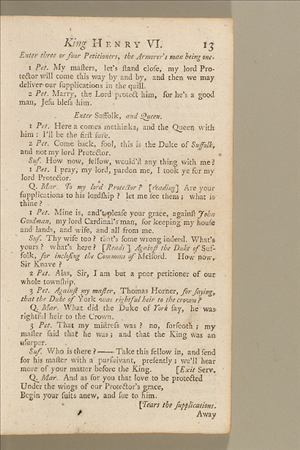 King HENRY VI. 13
Enter three or four Petitioners, the Armorer's man being one.
1 Pet. My masters, let's stand close, my lord Pro-
tector will come this way by and by, and then we may
deliver our supplications in the quill.
2 Pet. Marry, the Lord protect him, for he's a good
man, Jesu bless him.
Enter Suffolk, and Queen.
1 Pet. Here a comes methinks, and the Queen with
him: I'll be the first sure.
2 Pet. Come back, fool, this is the Duke of Suffolk,
and not my lord Protector.
Suf. How now, fellow, would'st any thing with me?
1 Pet. I pray, my lord, pardon me, I took ye for my
lord Protector.
Q. Mar. To my lord Protector? [reading] Are your
supplications to his lordship? let me see them; what is
thine?
1 Pet. Mine is, and't please your grace, against John
Goodman, my lord Cardinal's man, for keeping my house
and lands, and wife, and all from me.
Suf. Thy wife too? that's some wrong indeed. What's
yours? what's here? [Reads] Against the Duke of Suf-
folk, for inclosing the Commons of Melford. How now,
Sir Knave?
2 Pet. Alas, Sir, I am but a poor petitioner of our
whole township.
3 Pet. Against my master, Thomas Horner, for saying,
that the Duke of York was rightful heir to the crown?
Q. Mar. What did the Duke of York say, he was
rightful heir to the Crown.
3 Pet. That my mistress was? no, forsooth; my
master said that he was; and that the King was an
usurper.
Suf. Who is there? —— Take this fellow in, and send
for his master with a pursuivant, presently; we'll hear
more of your matter before the King. [Exit Serv.
Q. Mar. And as for you that love to be protected
Under the wings of our Protector's grace,
Begin your suits anew, and sue to him.
[Tears the supplications.
Away